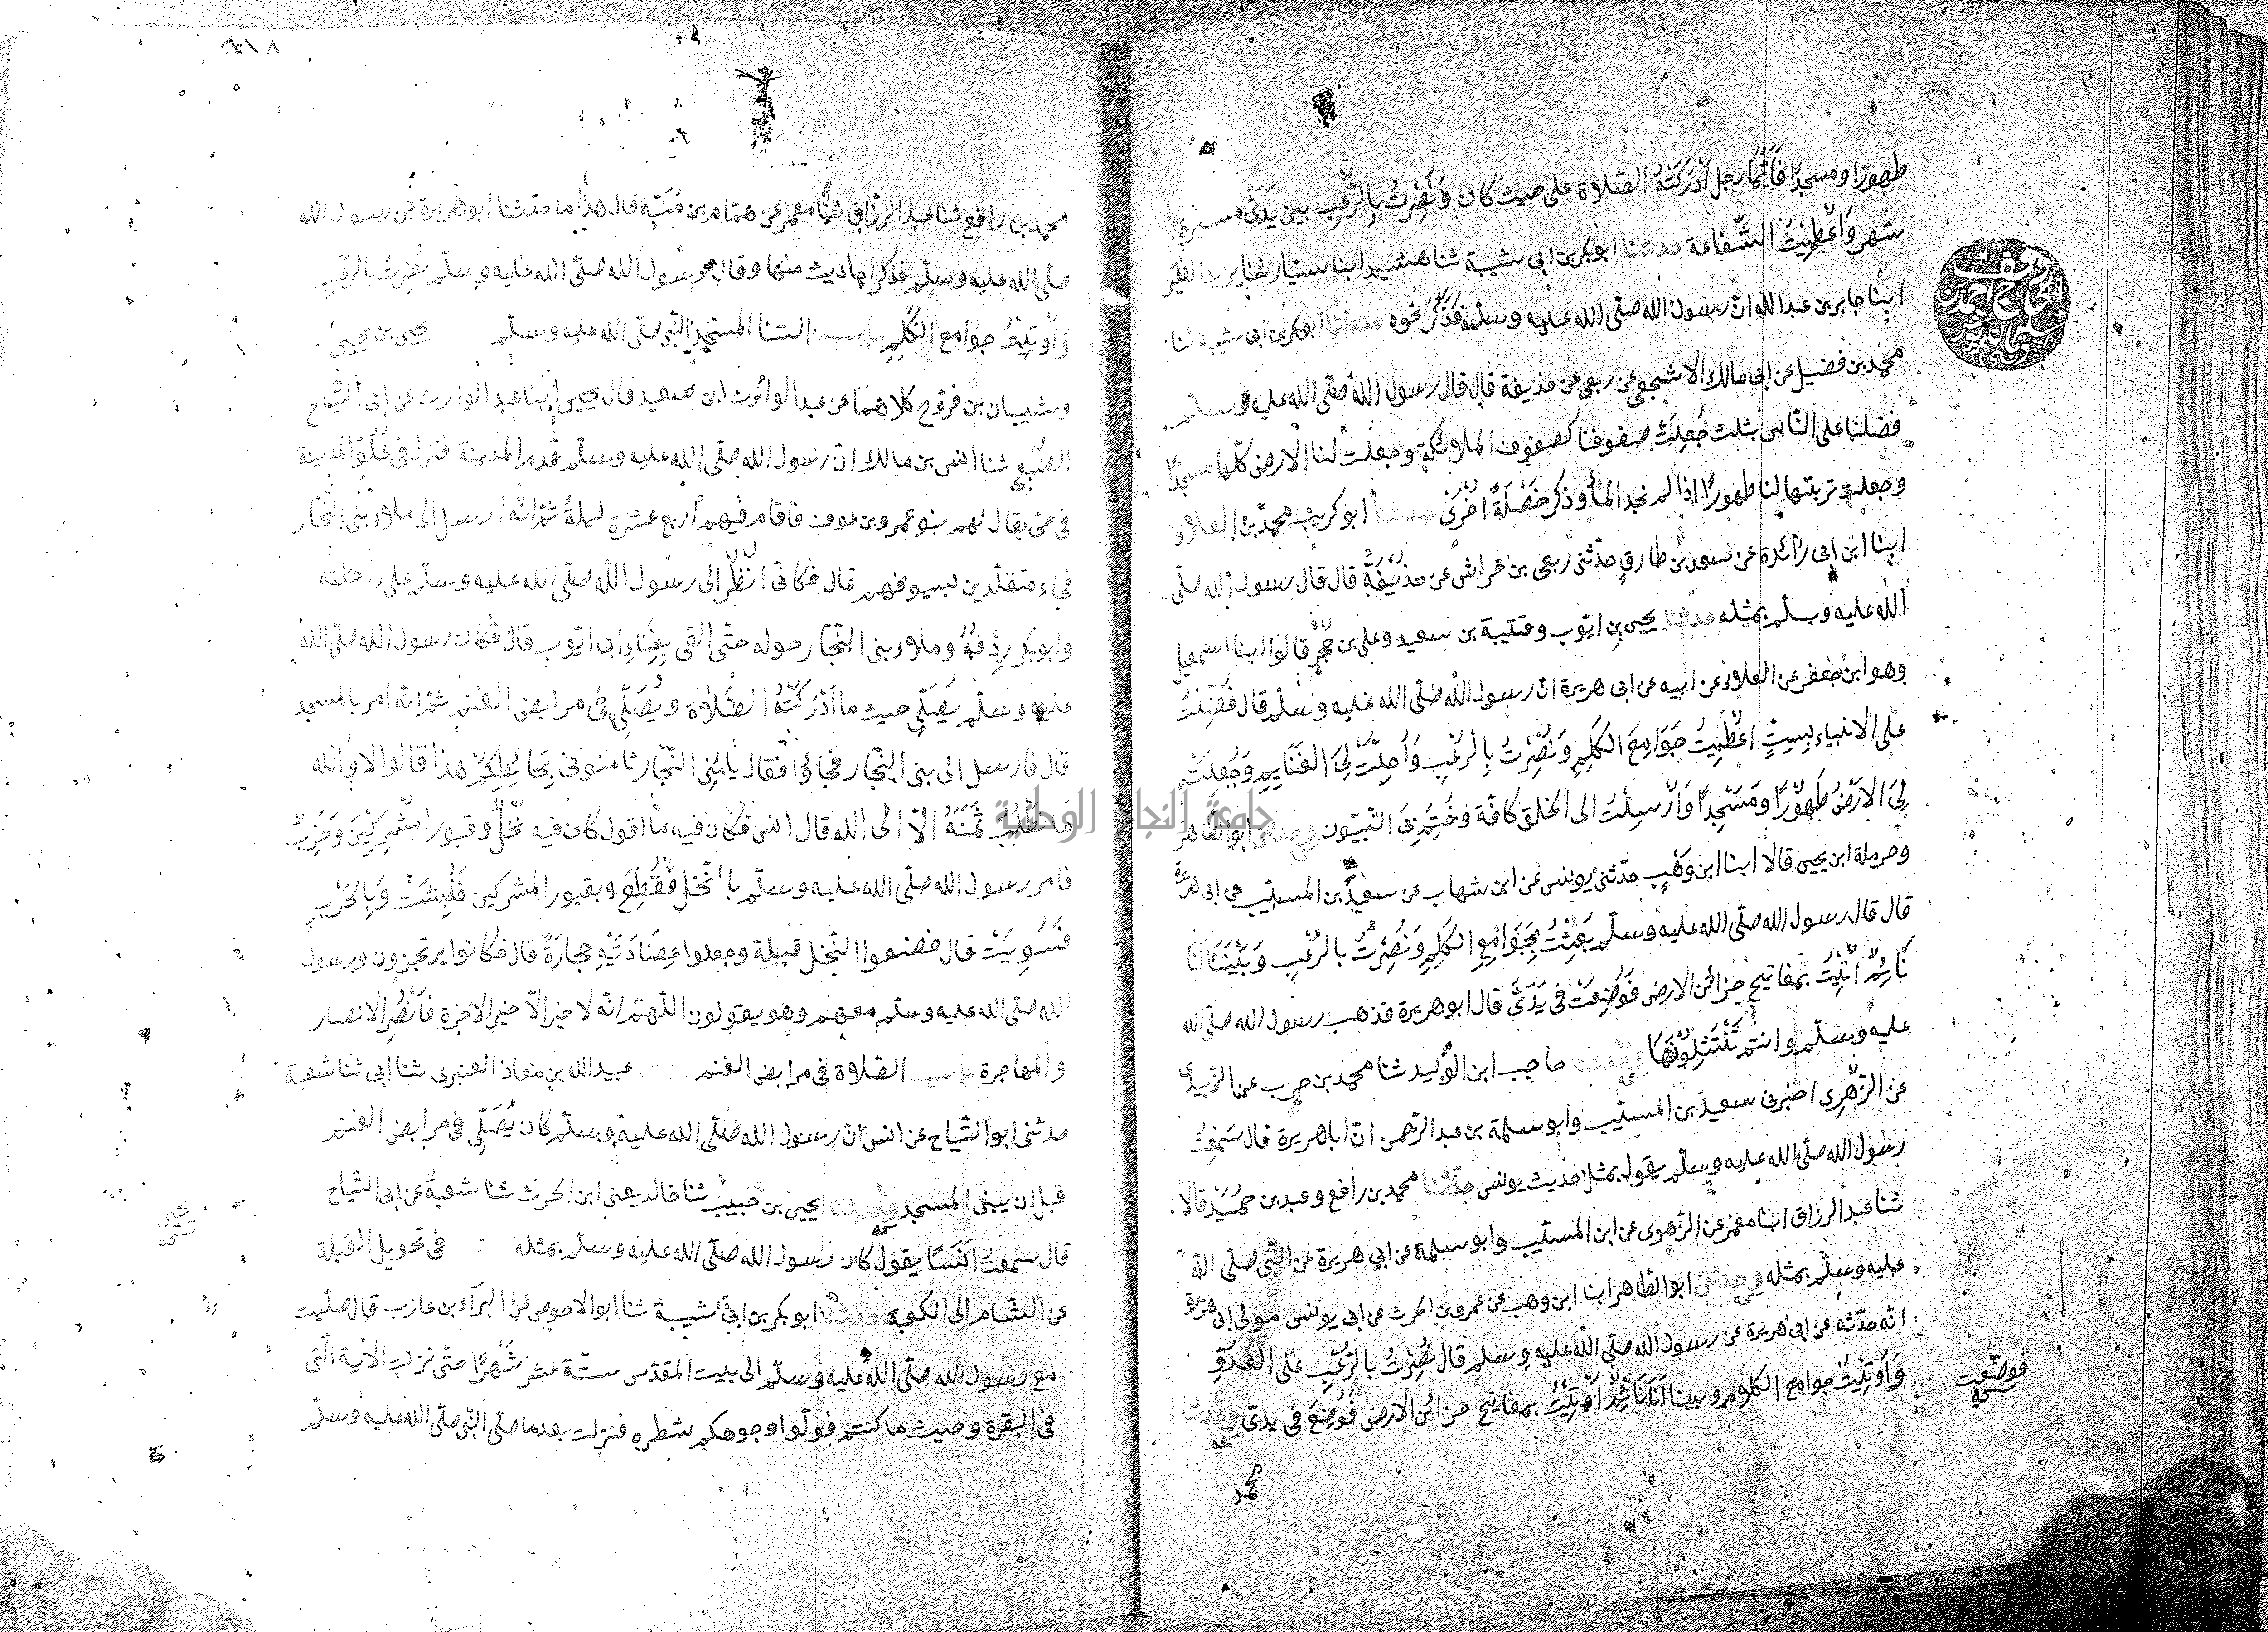 طهورًا ومسجدًا فأيّما رجل أدركته الصلاة صلى حيث كان ونصرت بالرعب بين يديّ مسيرة
شهر وأعطيت الشفاعة حدثنا ابو بكر بن ابى شيبة ثنا هشيم ابنا سيار ثنا يزيد الفقير
ابنا جابر بن عبد الله ان رسول الله صلى الله عليه وسلم فذكر نحوه حدثنا ابو بكر بن ابى شيبة ثنا
محمد بن فضيل عن ابى مالك الاشجعى عن ربعى عن حذيفة قال قال رسول الله صلى الله عليه وسلم
فضلنا على الناس بثلث جُعلت صفوفنا كصفوف الملائكة وجعلت لنا الارض كلها مسجدًا
وجعلت تربتها لنا طهورًا اذا لم نجد المأ وذكر خَصْلَةً اخرى حدثنا ابو كريب محمد بن العلاء
ابنا ابن ابى زائدة عن سعد بن طارق حدثنى ربعى بن خراش عن حذيفة قال قال رسول الله صلى
الله عليه وسلم بمثله حدثنا يحيى بن ايوب وقتيبة بن سعيد وعلى بن حُجْرٍ قالوا ابنا اسمعيل
وهو ابن جعفر عن العلاء عن ابيه عن ابى هريرة ان رسول الله صلى الله عليه وسلم قال فُضِّلتُ
على الانبياء بستٍ اعطيت جوامع الكلم ونُصرتُ بالرعب وأحلّت لى الغنايم وجُعلت
لى الارضُ طهورًا ومسجدًا وأرسلتُ الى الخلق كافة وختم بى النبيون وحدثنى ابو الطاهر
وحرملة ابن يحيى قالا ابنا ابن وهب حدثنى يونس عن ابن شهاب عن سعيد بن المسيب عن ابى هريرة
قال قال رسول الله صلى الله عليه وسلم بعثتُ بجوامع الكلم ونُصرتُ بالرعب وبينا انا
نائم أتيتُ بمفاتيح خزائن الارض فوضعت فى يدىّ قال ابو هريرة فذهب رسول الله صلى الله
عليه وسلم وانتم تنتثلونها وحدثنا حاجب ابن الوليد ثنا محمد بن حرب عن الزبيدى
عن الزهرى اخبرنى سعيد بن المسيب وابو سلمة بن عبد الرحمن انّ ابا هريرة قال سمعتُ
رسول الله صلى الله عليه وسلم يقول بمثل حديث يونس حدثنا محمد بن رافع وعبد بن حميد قالا
ثنا عبد الرزاق ابنا معمر عن الزهرى عن ابن المسيب وابو سلمة عن ابى هريرة عن النبى صلى الله
عليه وسلم بمثله وحدثنى ابو الطاهر ابنا ابن وهب عن عمرو بن الحرث عن ابى يونس مولى ابى هريرة
انه حدثه عن ابى هريرة عن رسول الله صلى الله عليه وسلم قال نُصرتُ بالرعب على العدوّ
وأوتيتُ جوامع الكلام وبينا انا نائم أوتيتُ بمفاتيح خزائن الارض فوُضع فى يدىّ وحدثنا
فوضعت
محمد
وقف
الحاج احمد بن
محمد بن رافع ثنا عبد الرزاق ثنا معمر عن همام بن منبه قال هذا ما حدثنا ابو هريرة عن رسول الله
صلى الله عليه وسلم فذكر احاديث منها وقال رسول الله صلى الله عليه وسلم نُصرتُ بالرعب
وأوتيتُ جوامع الكلم باب المسجد النبى صلى الله عليه وسلم يحيى بن يحيى
وشيبان بن فروخ كلاهما عن عبد الوارث ابن سعيد قال يحيى ابنا عبد الوارث عن ابى التياح
الضبعى ثنا انس بن مالك ان رسول الله صلى الله عليه وسلم قدم المدينة فنزل فى علو المدينة
فى حى يقال لهم بنو عمرو بن عوف فاقام فيهم أربع عشرة ليلةً ثم انه ارسل الى ملاء بنى النجار
فجاء متقلدين بسيوفهم قال فكانى انظر الى رسول الله صلى الله عليه وسلم على راحلته
وابو بكر ردفهُ وملاء بنى النجار حوله حتى القى بفناءِ ابى ايوب قال فكان رسول الله صلى الله
عليه وسلم يُصلى حيث ما ادركتهُ الصّلاة ويُصلى فى مرابض الغنم ثم انه امر بالمسجد
قال فارسل الى بنى النجار فجاؤا فقال يا بنى النجار ثامنونى بحائطكم هذا قالوا لا والله
ما نطلب ثمنهُ الّا الى الله قال انس فكان فيه ما اقول كان فيه نخلٌ وقبور المشركين وخرب
فامر رسول الله صلى الله عليه وسلم بالنخل فقُطع وبقبور المشركين فنُبشت وبالخرب
فسُويت قال فصفوا النخل قبلة وجعلوا عضادتيه حجارةً قال فكانوا يرتجزون ورسول
الله صلى الله عليه وسلم معهم وهو يقولون اللهم انه لا خير الّا خير الاخرة فأنصر الانصار
والمهاجرة باب الصّلاة فى مرابض الغنم حدثنا عبيد الله بن معاذ العنبرى ثنا ابى ثنا شعبة
حدثنى ابو التياح عن انس ان رسول الله صلى الله عليه وسلم كان يُصلى فى مرابض الغنم
قبل ان يبنى المسجد وحدثنا يحيى بن حبيب ثنا خالد يعنى ابن الحرث ثنا شعبة عن ابى التياح
قال سمعتُ أنسًا يقول كان رسول الله صلى الله عليه وسلم بمثله فى تحويل القبلة
عن الشام الى الكعبة حدثنا ابو بكر بن ابى شيبة ثنا ابو الاحوص عن البرآء بن عازب قال صليت
مع رسول الله صلى الله عليه وسلم الى بيت المقدس ستة عشر شهرًا حتى نزلت الآية التى
فى البقرة وحيث ما كنتم فولوا وجوهكم شطره فنزلت بعد ما صلى النبى صلى الله عليه وسلم
يحيى
جامعة النجاح الوطنية